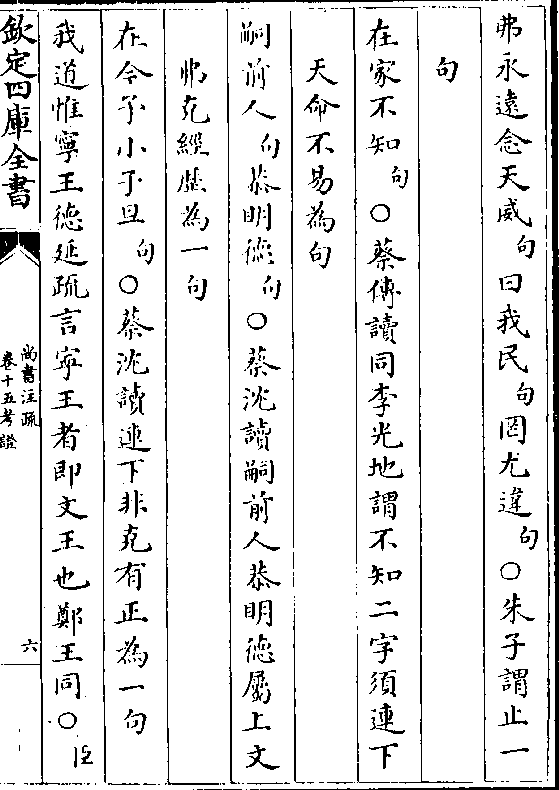 弗永遠念天威句曰我民句罔尤違句○朱子謂止一
句
在家不知句○蔡傳讀同李光地謂不知二字須連下
天命不易為句
嗣前人句恭明德句○蔡沈讀嗣前人恭明德屬上文
弗克經歴為一句
在今予小子旦句○蔡沈讀連下非克有正為一句
我道惟寧王德延疏言寧王者即文王也鄭王同○臣
欽定四庫全書
尚書注疏
卷十五考證
六